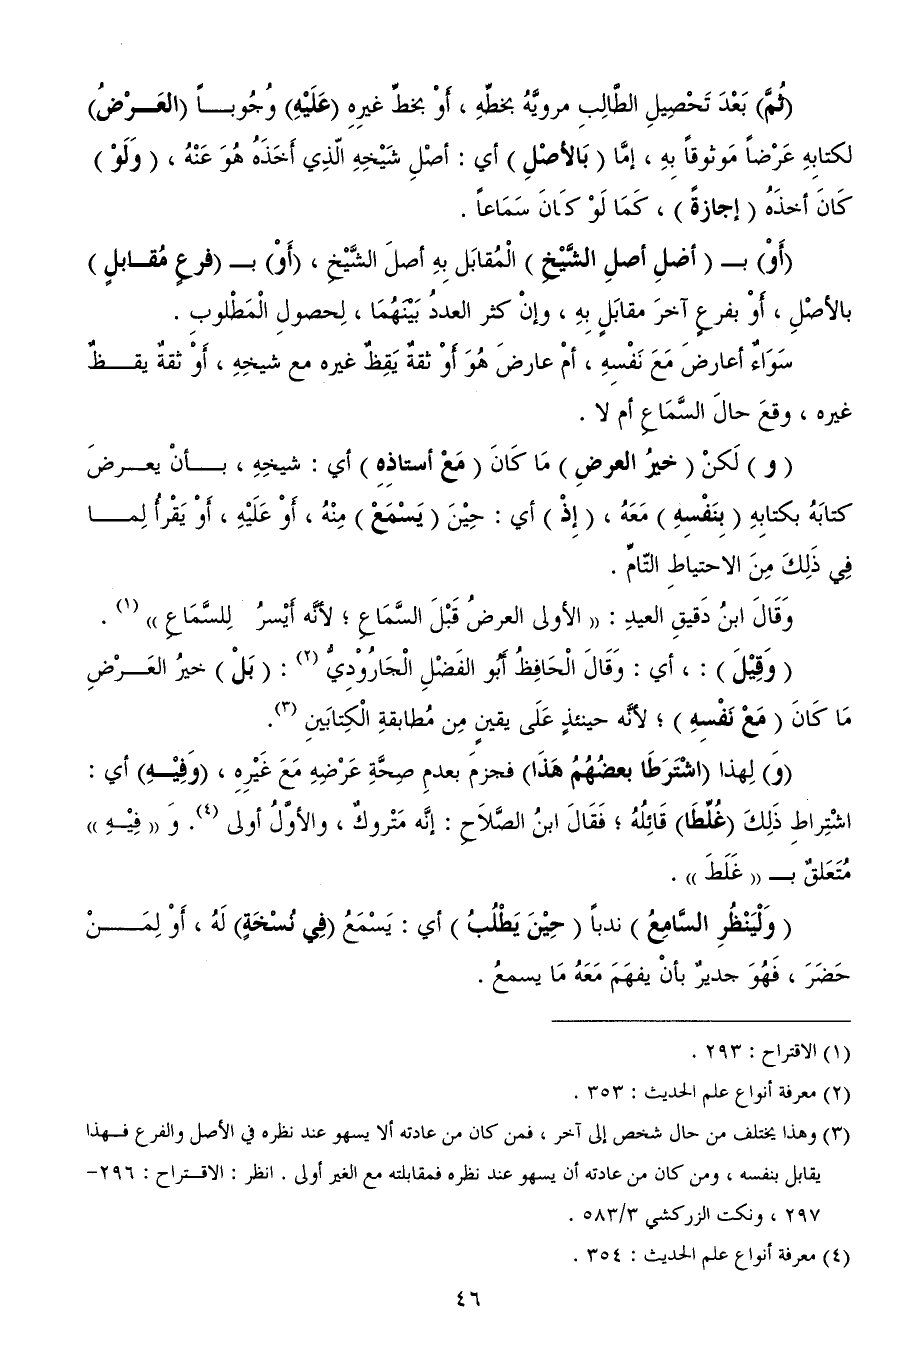 (ثُمَّ) بَعْدَ تَحْصِيلِ الطَّالِبِ مرويَّهُ بخطِّهِ ، أَوْ بخطِّ غيرِهِ (عَلَيْهِ) وُجُوبــاً (العَــرْضُ)
لكتابِهِ عَرْضاً مَوثوقاً بِهِ ، إمَّا ( بَالأصْلِ ) أي : أصْلِ شَيْخِهِ الَّذِي أَخَذَهُ هُوَ عَنْهُ ، ( وَلَوْ )
كَانَ أخذَهُ ( إجازةً ) ، كَمَا لَوْ كَانَ سَمَاعاً .
(أَوْ) بـ ( أصْلِ أصلِ الشَّيْخِ ) الْمُقابَلِ بِهِ أصلَ الشَّيْخِ ، (أَوْ) بـ (فرعٍ مُقـابلٍ )
بالأصْلِ ، أَوْ بفرعٍ آخرَ مقابَلٍ بِهِ ، وإنْ كثر العددُ بَيْنَهُمَا ، لِحصولِ الْمَطْلوبِ .
سَوَاءٌ أعارضَ مَعَ نَفْسِهِ ، أمْ عارضَ هُوَ أَوْ ثقةٌ يَقِظٌ غيره مع شيخِهِ ، أَوْ ثقةٌ يقــظٌ
غيره ، وقعَ حالَ السَّمَاعِ أم لا .
( و ) لَكنْ ( خيرُ العرضِ ) مَا كَانَ ( مَعْ أستاذِهِ ) أي : شيخِهِ ، بــأنْ يعــرضَ
كتابَهُ بكتابِهِ ( بِنَفْسِهِ ) مَعَهُ ، ( إذْ ) أي : حِيْنَ ( يَسْمَعْ ) مِنْهُ ، أَوْ عَلَيْهِ ، أَوْ يَقْرأُ لِمــا
فِي ذَلِكَ مِنَ الاحتياطِ التّامِّ .
وَقَالَ ابنُ دَقيقِ العيدِ : (( الأولى العرضُ قَبْلَ السَّمَاعِ ؛ لأنَّه أَيْسرُ لِلسَّمَاعِ )) (١) .
( وَقِيْلَ ) : ، أي : وَقَالَ الْحَافِظُ أَبُو الفَضْلِ الْجَارُوْديُّ (٢) : ( بَلْ ) خيرُ العَــرْضِ
مَا كَانَ ( مَعْ نَفْسِهِ ) ؛ لأنَّه حينئذٍ عَلَى يقينٍ مِن مُطابقةِ الْكِتابَينِ (٣).
(وَ) لِهذا (اشْتَرَطَا بعضُهُمُ هَذَا) فجزمَ بعدمِ صِحَّةِ عَرْضِهِ مَعَ غَيْرِهِ ، (وَفِيْــهِ) أي :
اشْتِراطِ ذَلِكَ (غُلِّطَا) قَائِلُهُ ؛ فَقَالَ ابنُ الصَّلاَحِ : إنَّه مَتْروكٌ ، والأوَّلُ أولى (٤). وَ (( فِيْــهِ ))
مُتَعَلقٌ بـ (( غَلَطَ )) .
( وَلْيَنْظُرِ السَّامِعُ ) ندباً ( حِيْنَ يَطْلُبُ ) أي : يَسْمَعُ (فِي نُسْخَةٍ) لَهُ ، أَوْ لِمَــنْ
حَضَرَ ، فَهُوَ جديرٌ بأنْ يفهَمَ مَعَهُ مَا يسمعُ .
(١) الاقتراح : ٢٩٣ .
(٢) معرفة أنواع علم الحديث : ٣٥٣ .
(٣) وهذا يختلف من حال شخص إلى آخر ، فمن كان من عادته ألا يسهو عند نظره في الأصل والفرع فــهذا
يقابل بنفسه ، ومن كان من عادته أن يسهو عند نظره فمقابلته مع الغير أولى . انظر : الاقــتراح : ٢٩٦-
٢٩٧ ، ونكت الزركشي ٥٨٣/٣ .
(٤) معرفة أنواع علم الحديث : ٣٥٤ .
٤٦